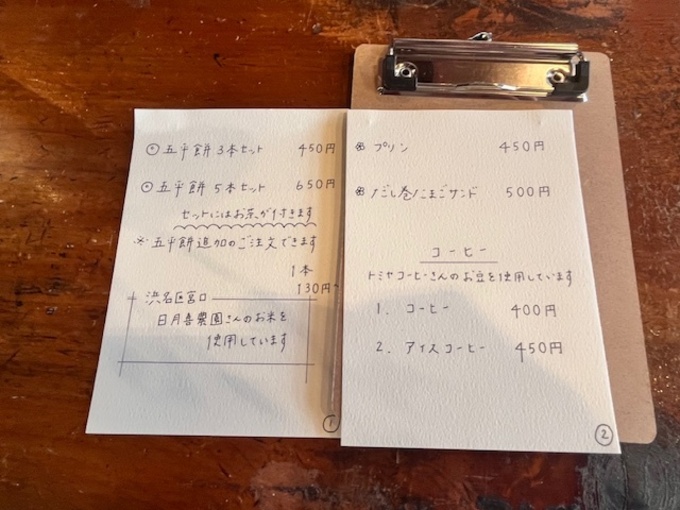 五平餅 3本セット 450円
五平餅 5本セット 650円
セットにはお茶が付きます
※ 五平餅追加のご注文できます
1本
130円~
浜名区宮口
日月喜農園さんのお米を
使用しています
①
プリン 450円
だし巻たまごサンド 500円
コーヒー
トミヤコーヒーさんのお豆を使用しています
1. コーヒー 400円
2. アイスコーヒー 450円
②